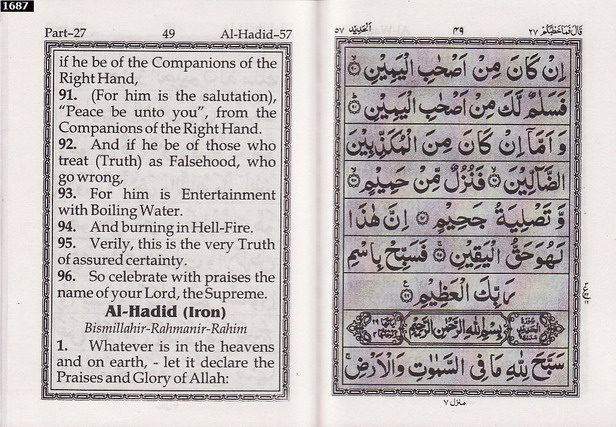 1687
Part-27 49 Al-Hadid-57
if he be of the Companions of the
Right Hand,
91. (For him is the salutation),
“Peace be unto you”, from the
Companions of the Right Hand.
92. And if he be of those who
treat (Truth) as Falsehood, who
go wrong,
93. For him is Entertainment
with Boiling Water.
94. And burning in Hell-Fire.
95. Verily, this is the very Truth
of assured certainty.
96. So celebrate with praises the
name of your Lord, the Supreme.
Al-Hadid (Iron)
Bismillahir-Rahmanir-Rahim
1. Whatever is in the heavens
and on earth, - let it declare the
Praises and Glory of Allah:
قال فما خطبكم ٢٧ ٤٩ الحديد ٥٧
اِنْ كَانَ مِنْ اَصْحٰبِ الْيَمِيْنِ ۙ۝۹۰
فَسَلٰمٌ لَّكَ مِنْ اَصْحٰبِ الْيَمِيْنِ ؕ۝۹۱
وَ اَمَّاۤ اِنْ كَانَ مِنَ الْمُكَذِّبِيْنَ
الضَّآلِّيْنَ ۙ۝۹۲ فَنُزُلٌ مِّنْ حَمِيْمٍ ۙ۝۹۳
وَّ تَصْلِيَةُ جَحِيْمٍ ۝۹۴ اِنَّ هٰذَا
لَهُوَ حَقُّ الْيَقِيْنِ ۚ۝۹۵ فَسَبِّحْ بِاسْمِ
رَبِّكَ الْعَظِيْمِ ۝۹۶
بِسْمِ اللّٰهِ الرَّحْمٰنِ الرَّحِيْمِ
سَبَّحَ لِلّٰهِ مَا فِی السَّمٰوٰتِ وَالْاَرْضِ ۚ
منزل ٧